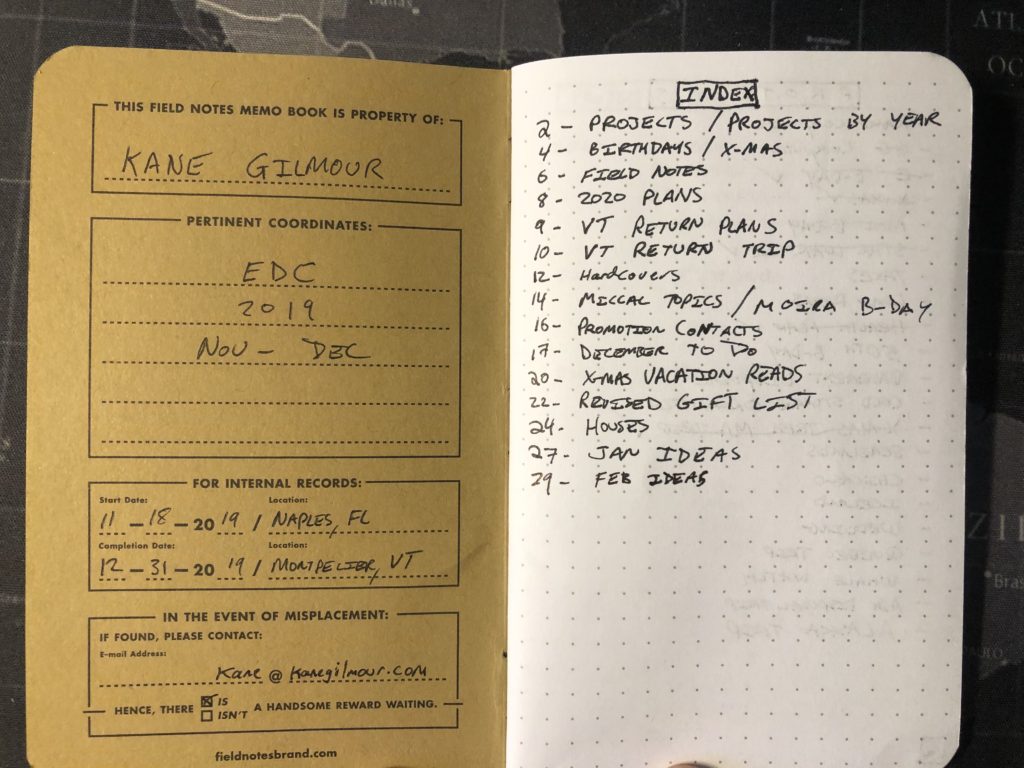 THIS FIELD NOTES MEMO BOOK IS PROPERTY OF:
KANE GILMOUR
PERTINENT COORDINATES:
EDC
2019
NOV - DEC
FOR INTERNAL RECORDS:
Start Date: Location:
11 - 18 - 20 19 / NAPLES, FL
Completion Date: Location:
12 - 31 - 20 19 / MONTPELIER, VT
IN THE EVENT OF MISPLACEMENT:
IF FOUND, PLEASE CONTACT:
E-mail Address:
Kane @ Kanegilmour.com
HENCE, THERE IS A HANDSOME REWARD WAITING.
ISN'T
fieldnotesbrand.com
INDEX
2 - PROJECTS / PROJECTS BY YEAR
4 - BIRTHDAYS / X-MAS
6 - FIELD NOTES
8 - 2020 PLANS
9 - VT RETURN PLANS
10 - VT RETURN TRIP
12 - Hardcovers
14 - MICCAL TOPICS / MOIRA B-DAY
16 - PROMOTION CONTACTS
17 - DECEMBER TO DO
20 - X-MAS VACATION READS
22 - REVISED GIFT LIST
24 - HOUSES
27 - JAN IDEAS
29 - FEB IDEAS
ATL
OC
ZIL
Bras